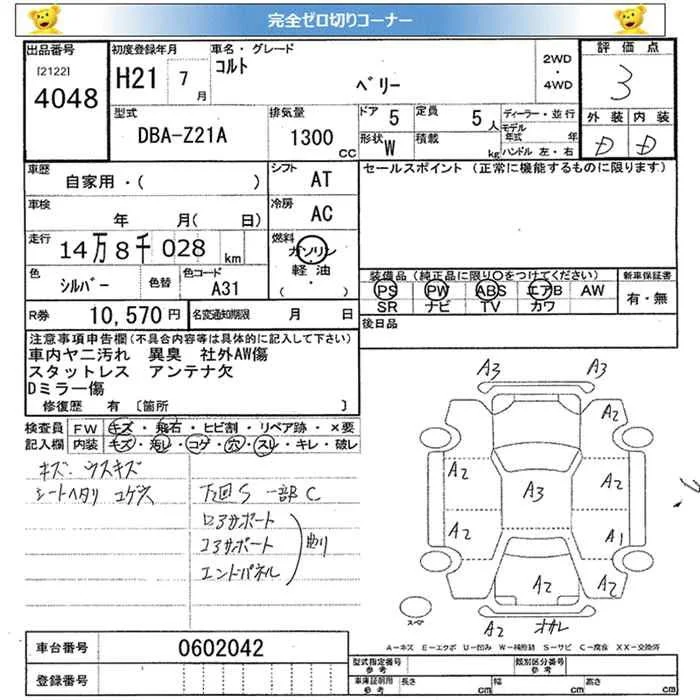 完全ゼロ切りコーナー
出品番号
[2122]
4048
初度登録年月
H21 7
月
車名・グレード
コルト
ベリー
2WD
・
4WD
評価点
3
外装 内装
D D
型式
DBA-Z21A
排気量
1300
CC
ドア 5
定員 5人
形状 W
積載 kg
ディーラー・並行
モデル年式 年
ハンドル 左・右
車歴
自家用・( )
シフト
AT
車検
年 月( 日)
冷房
AC
走行
14万8千028 km
燃料
ガソリン
・軽油・
( )
色
シルバー
色替
色コード
A31
R券 10,570円
名変通知期限 月 日
セールスポイント (正常に機能するものに限ります)
装備品(純正品に限り○をつけてください)
PS PW ABS エアB AW
SR ナビ TV カワ
新車保証書
有・無
後日品
注意事項申告欄(不具合内容等は具体的に記入して下さい)
車内ヤニ汚れ 異臭 社外AW傷
スタットレス アンテナ欠
Dミラー傷
修復歴 有 〔箇所 〕
検査員 FW キズ・飛石・ヒビ割・リペア跡・×要
記入欄 内装 キズ・汚レ・コゲ・穴・スレ・キレ・破レ
キズ・ウスキズ
シートヘタリ コゲ穴
下回S 一部C
ロアサポート
コアサポート 曲り
エンドパネル
A3 A3
A2
A2
A3
A2
A2
A1
A2
A2
A2
スペア
A-キズ E-エクボ U-凹み W-補修跡 S-サビ C-腐食 XX-交換済
車台番号 0602042
登録番号
型式指定番号
参考
類別区分番号
参考
車庫証明用
参考
長さ cm 幅 cm 高さ cm